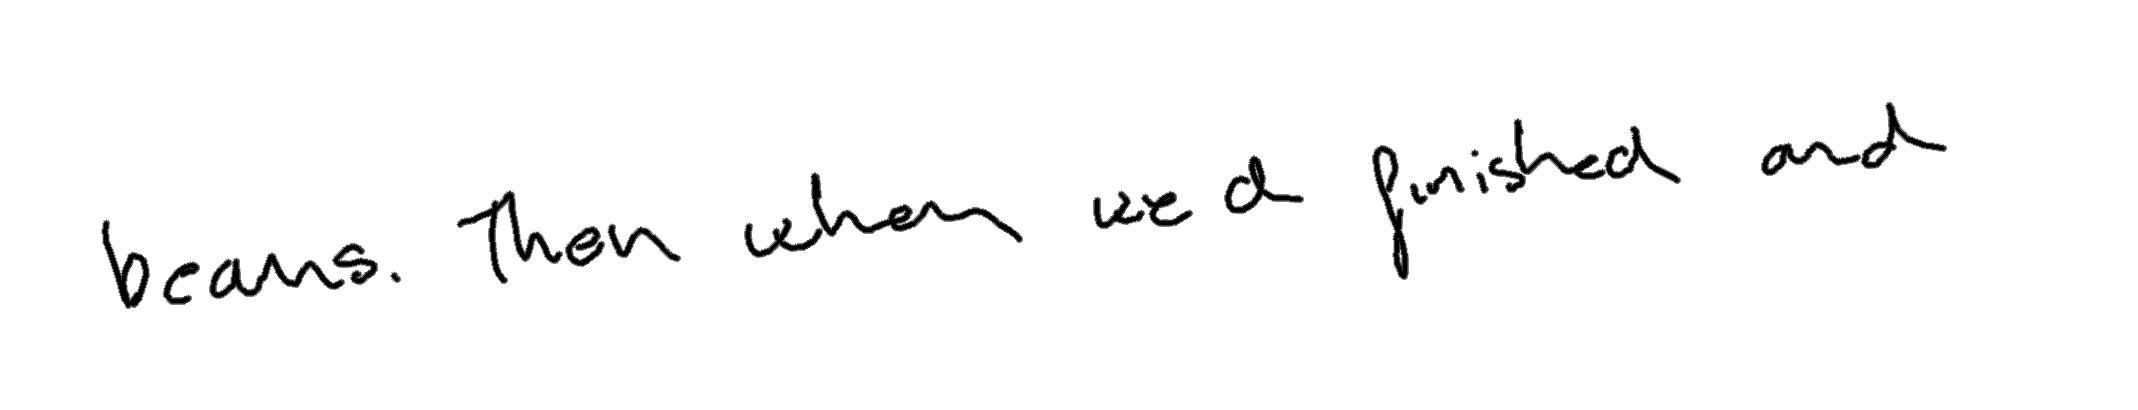 beans. Then when we d finished and